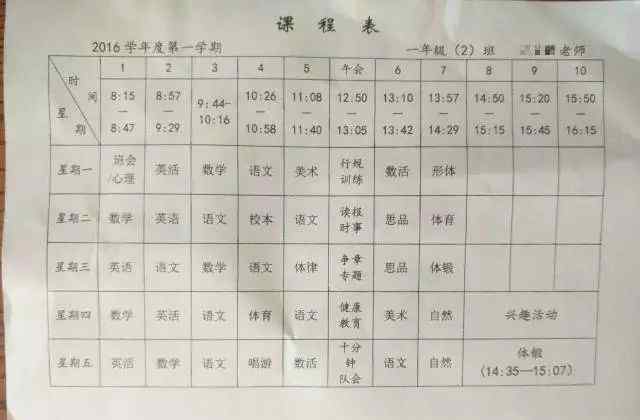 课 程 表
2016 学年度第一学期 一年级（2）班 老师
时间 星期 1 2 3 4 5 午会 6 7 8 9 10
8:15—8:47 8:57—9:29 9:44—10:16 10:26—10:58 11:08—11:40 12.50—13:05 13:10—13:42 13:57—14:29 14:50—15:15 15:20—15:45 15:50—16:15
星期一 班会/心理 英活 数学 语文 美术 行规训练 数活 形体
星期二 数学 英语 语文 校本 语文 读报时事 思品 体育
星期三 英语 语文 数学 语文 体律 争章专题 思品 体锻
星期四 数学 英活 语文 体育 语文 健康教育 美术 自然 兴趣活动
星期五 英活 数学 语文 唱游 数活 十分钟队会 语文 自然 体锻（14:35—15:07）